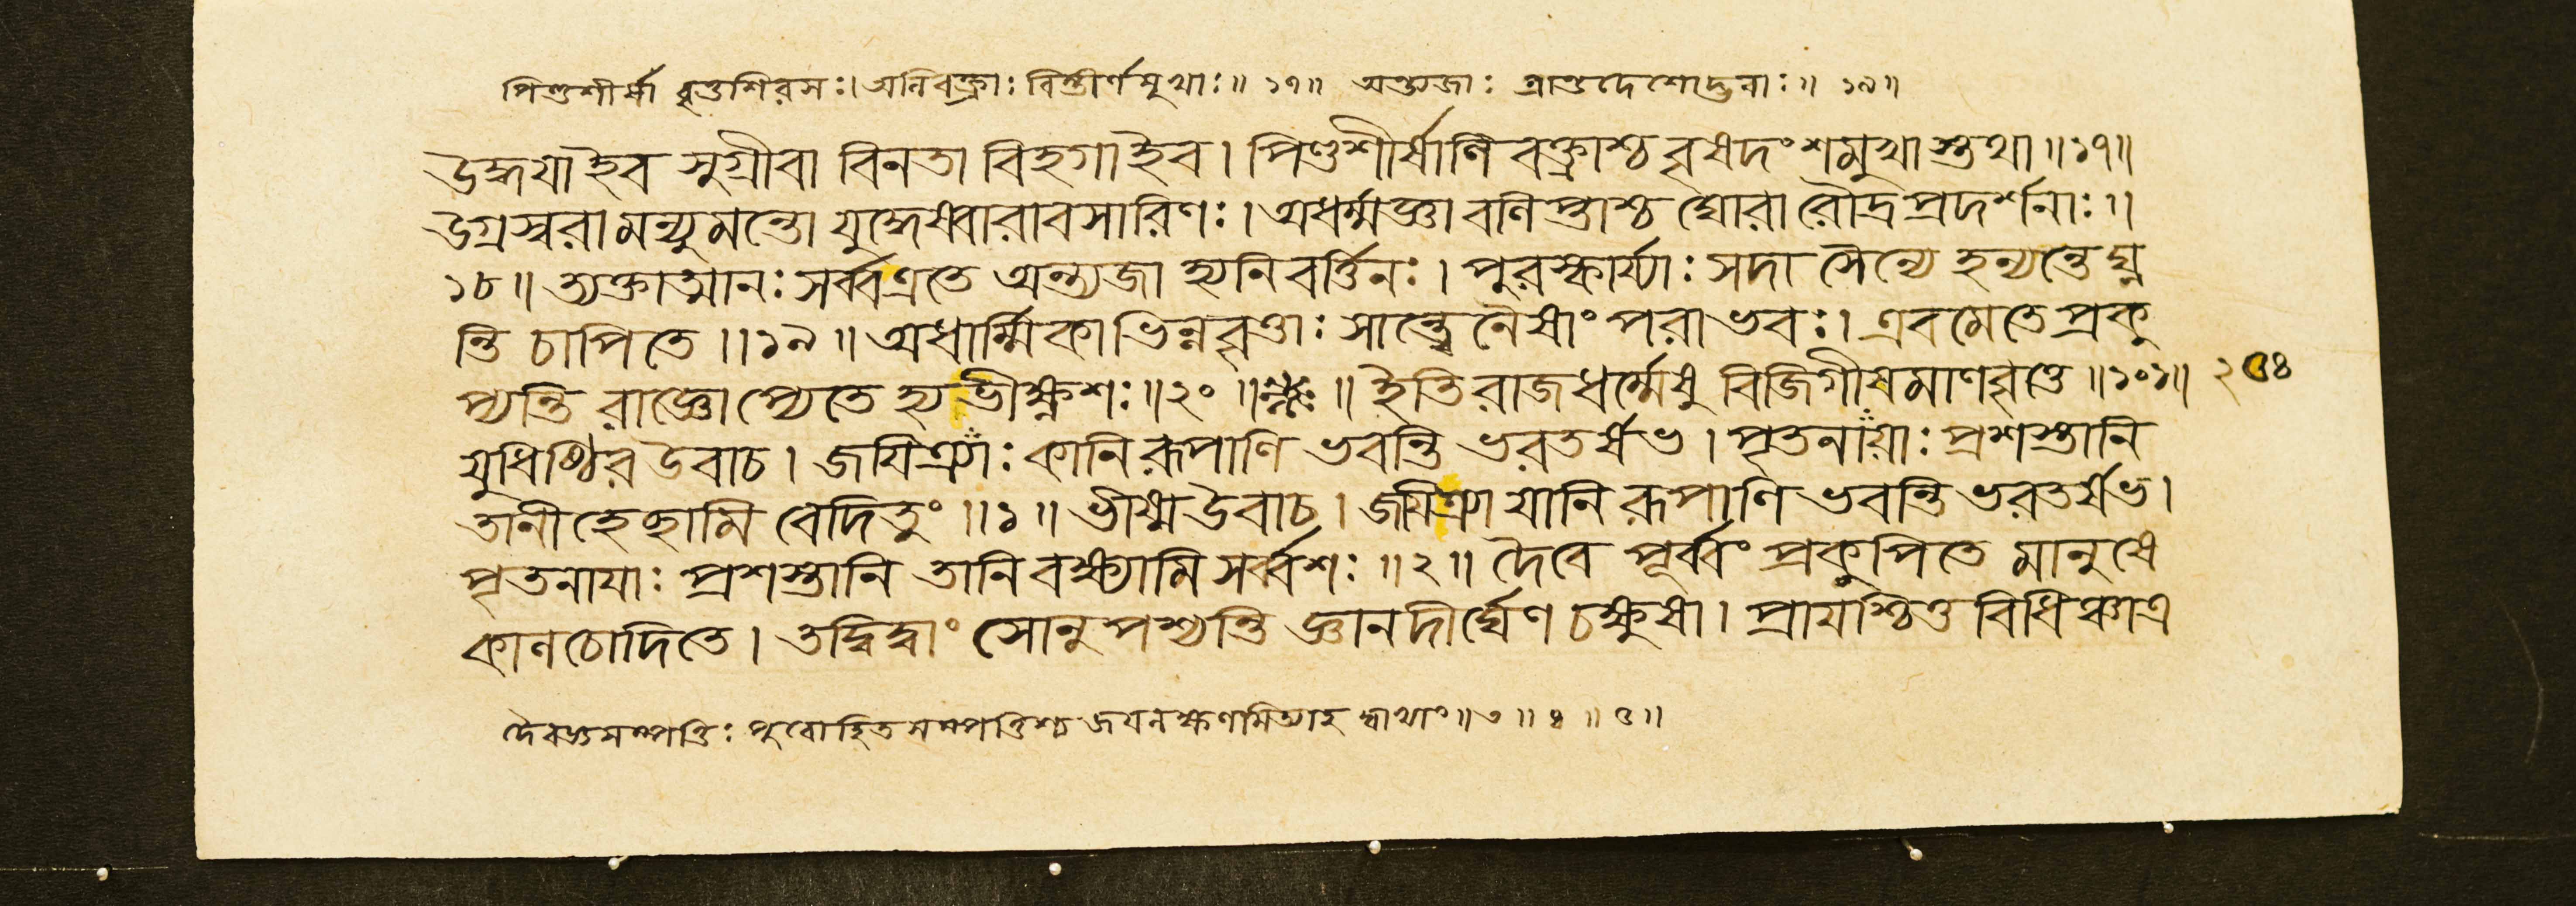 পিণ্ডশীর্ষা বৃত্তশিরসঃ। অতিবক্ত্রাঃ বিস্তীর্ণমুখাঃ॥ ১৭॥ অন্ত্যজাঃ প্রান্তদেশোদ্ভবাঃ॥ ১৯॥
উদ্বদ্ধা ইব সুগ্রীবা বিনতা বিহগা ইব। পিণ্ডশীর্ষাতিবক্ত্রাশ্চ বৃষদংশমুখাস্তথা॥১৭॥
উগ্রস্বরা মন্যুমন্তো যুদ্ধেষ্বারাবসারিণঃ। অধর্ম্মজ্ঞাবলিপ্তাশ্চ ঘোরা রৌদ্রপ্রদর্শনাঃ॥
১৮॥ ত্যক্তাত্মানঃ সর্ব্ব এতে অন্ত্যজা হ্যনিবর্ত্তিনঃ। পুরস্কার্য্যাঃ সদা সৈন্যে হন্যন্তে ঘ্ন
ন্তি চাপি তে॥১৯॥ অধার্ম্মিকা ভিন্নবৃত্তাঃ সান্ত্বেনৈষাং পরাভবঃ। এবমেতে প্রকু
প্যন্তি রাজ্ঞোপ্যেতে হ্যভীক্ষ্ণশঃ॥২০॥ ॥ ইতি রাজধর্ম্মেষু বিজিগীষমাণবৃত্তে॥১০১॥ ২৫৪
যুধিষ্ঠির উবাচ। জয়িত্র্যাঃ কানি রূপাণি ভবন্তি ভরতর্ষভ। পৃতনায়াঃ প্রশস্তানি
তানীহেছামি বেদিতুং॥১॥ ভীষ্ম উবাচ। জয়িত্র্যা যানি রূপাণি ভবন্তি ভরতর্ষভ।
পৃতনায়াঃ প্রশস্তানি তানি বক্ষ্যামি সর্ব্বশঃ॥২॥ দৈবে পূর্ব্বং প্রকুপিতে মানুষে
কালচোদিতে। তদ্বিদ্বাংসোনুপশ্যন্তি জ্ঞানদীর্ঘেণ চক্ষুষা। প্রায়শ্চিত্তবিধিঞ্চাত্র
দৈবজ্ঞসম্পত্তিঃ পুরোহিতসম্পত্তিশ্চ জয়লক্ষণমিত্যাহ দ্বাভ্যাং॥ ৩॥ ৪॥ ৫॥